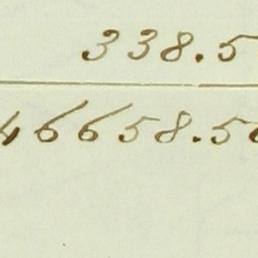 338.5
46658.50